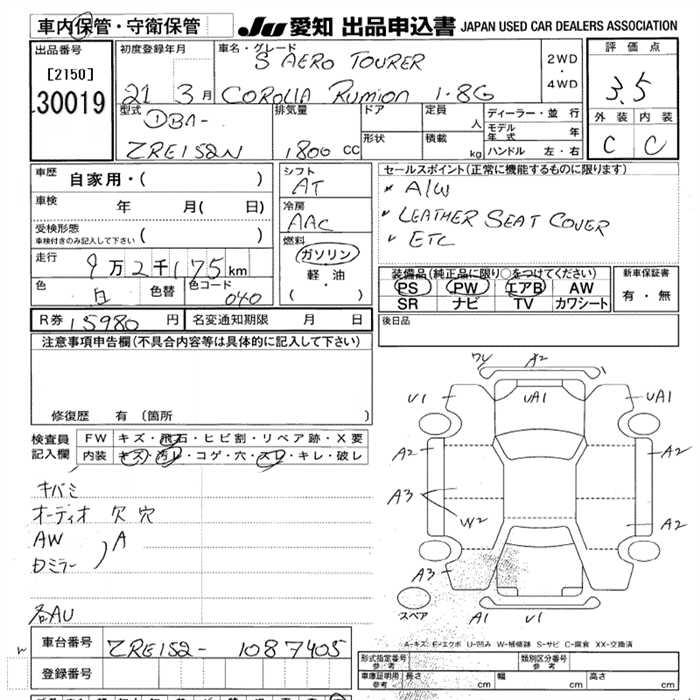 車内保管・守衛保管 JU 愛知 出品申込書 JAPAN USED CAR DEALERS ASSOCIATION
出品番号 初度登録年月 車名・グレード 評価点
[2150] S AERO TOURER 2WD
・
30019 21 3月 COROLLA RUMION 1.8G 4WD 3.5
型式 DBA- 排気量 ドア 定員 人 ディーラー・並行 外装 内装
モデル年式 年
ZRE152N 1800 cc 形状 積載 kg ハンドル 左・右 C C
車歴 自家用・( ) シフト AT セールスポイント(正常に機能するものに限ります)
車検 年 月( 日) 冷房 AAC A/W
受検形態 LEATHER SEAT COVER
車検付きのみ記入して下さい ( ) 燃料 ETC
走行 9万2千175km ガソリン
軽・油 装備品(純正品に限り○をつけてください) 新車保証書
色 白 色替 色コード 040 ( ・ ) PS PW エアB AW 有・無
SR ナビ TV カワシート
R券 15980 円 名変通知期限 月 日 後日品
注意事項申告欄(不具合内容等は具体的に記入して下さい)
修復歴 有 (箇所 )
検査員 FW キズ・飛石・ヒビ割・リペア跡・X要
記入欄 内装 キズ・汚レ・コゲ・穴・スレ・キレ・破レ
キバミ
オーディオ 欠 穴
AW A
ロミラー
名AU
ワレ A2
U1 UA1 UA1
A2 A2
A3
W2 A2
A3
スペア A1 U1
A-キズ E-エクボ U-凹み W-補修跡 S-サビ C-腐食 XX-交換済
W
車台番号 ZRE152- 1087405
登録番号
形式指定番号 参考 類別区分番号 参考
車庫証明用 参考 長さ cm 幅 cm 高さ cm